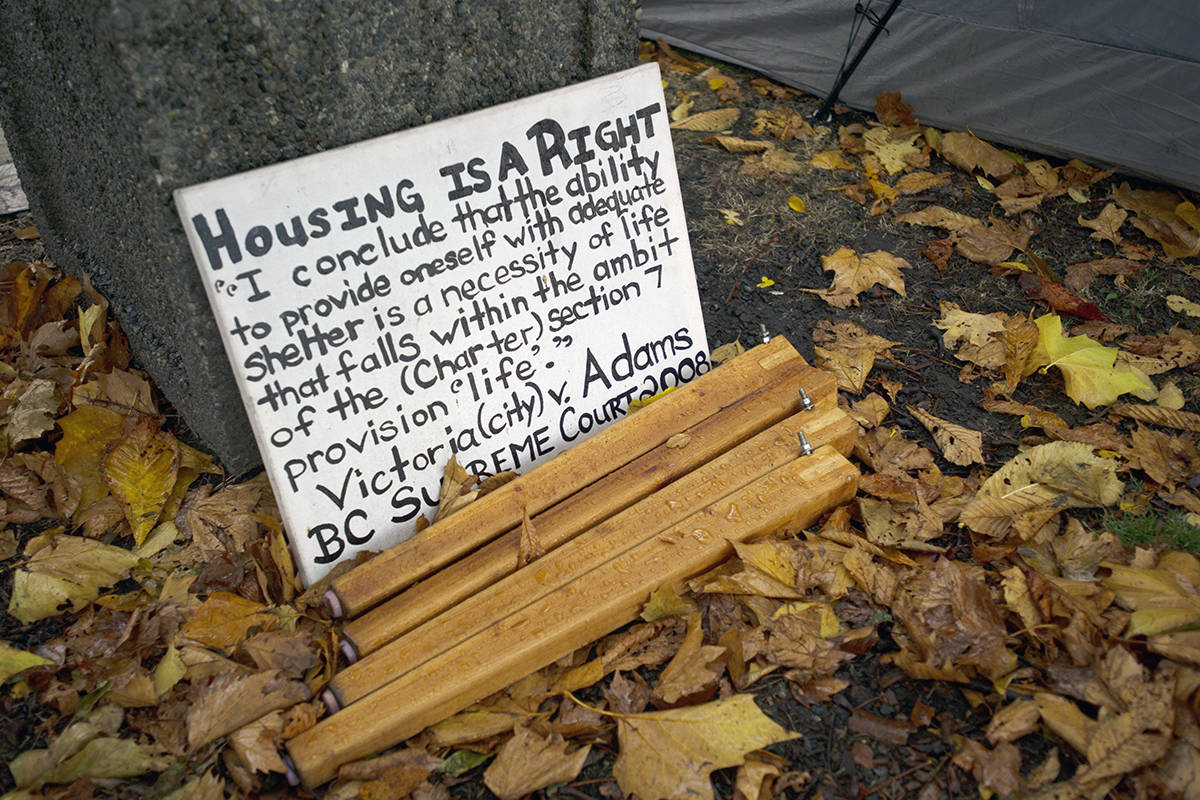 HOUSING IS A RIGHT
"I conclude that the ability
to provide oneself with adequate
shelter is a necessity of life
that falls within the ambit
of the (Charter) section 7
provision 'life'."
Victoria (city) v. Adams
BC SUPREME COURT 2008